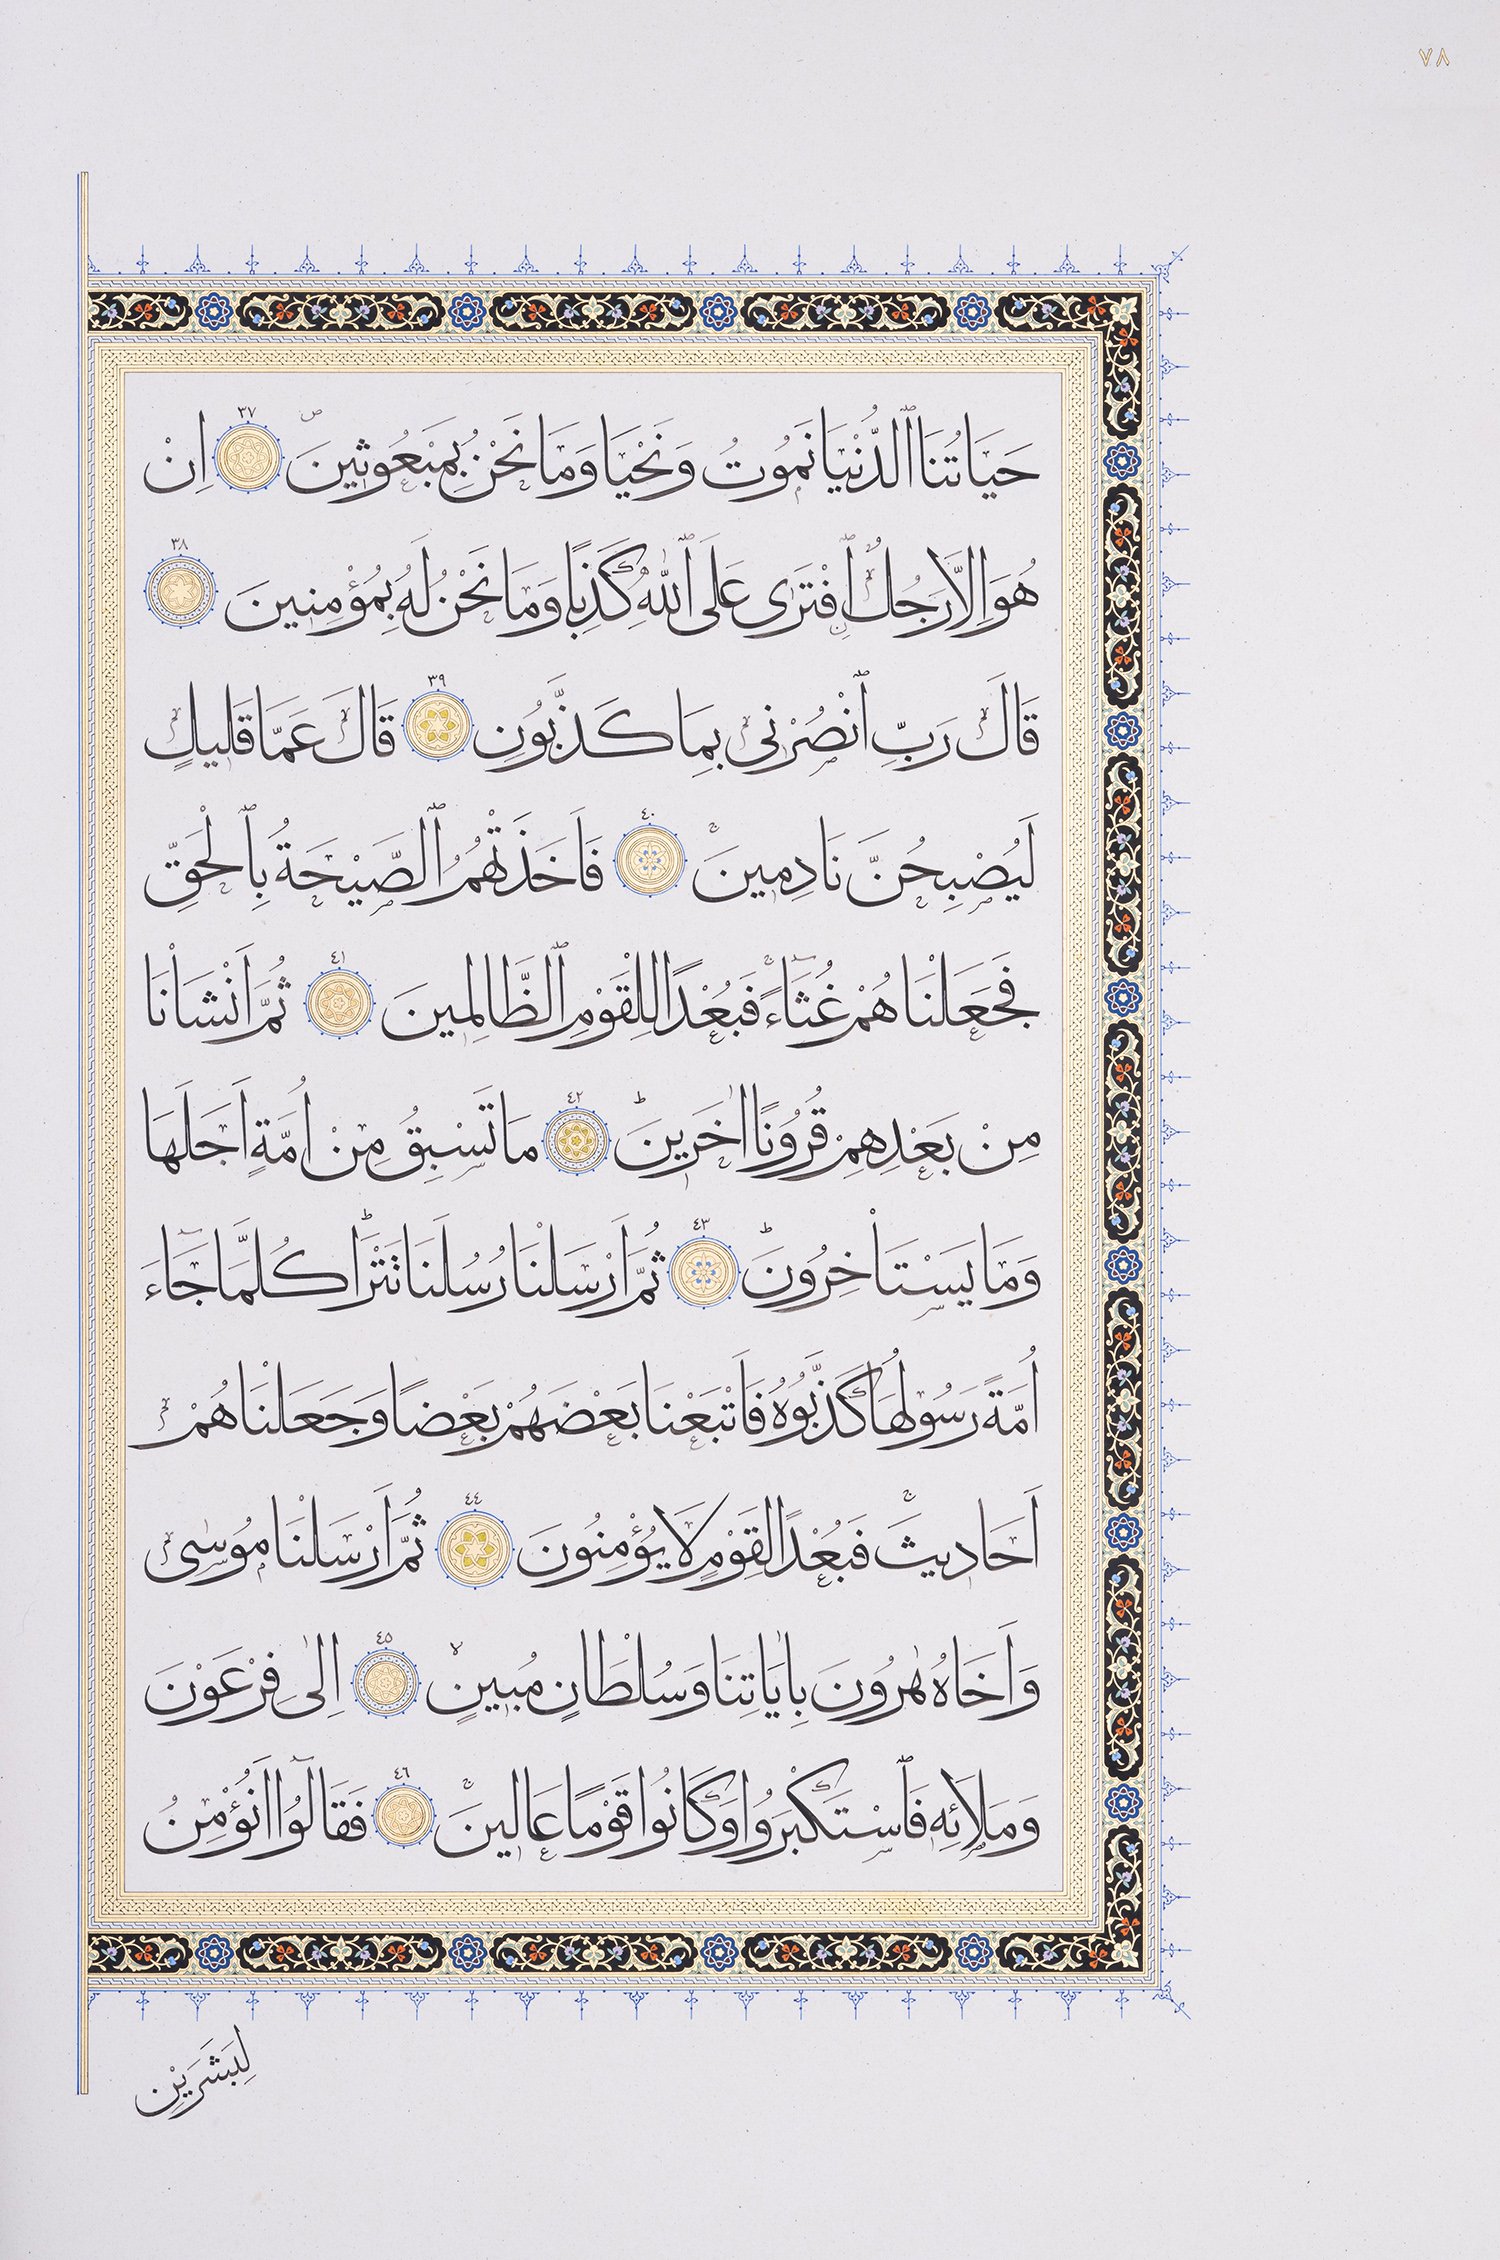 ٧٨
حَيَاتُنَا ٱلدُّنْيَا نَمُوتُ وَنَحْيَا وَمَا نَحْنُ بِمَبْعُوثِينَ ۖ ٣٧ اِنْ
هُوَ اِلَّا رَجُلٌ ٱفْتَرٰى عَلَى ٱللّٰهِ كَذِبًا وَمَا نَحْنُ لَهُ بِمُؤْمِنِينَ ٣٨
قَالَ رَبِّ ٱنْصُرْنِى بِمَا كَذَّبُونِ ٣٩ قَالَ عَمَّا قَلِيلٍ
لَيُصْبِحُنَّ نَادِمِينَ ۚ ٤٠ فَاَخَذَتْهُمُ ٱلصَّيْحَةُ بِٱلْحَقِّ
فَجَعَلْنَاهُمْ غُثَٓاءً ۚ فَبُعْدًا لِلْقَوْمِ ٱلظَّالِمِينَ ٤١ ثُمَّ اَنْشَأْنَا
مِنْ بَعْدِهِمْ قُرُونًا اٰخَرِينَ ؕ ٤٢ مَا تَسْبِقُ مِنْ اُمَّةٍ اَجَلَهَا
وَمَا يَسْتَأْخِرُونَ ؕ ٤٣ ثُمَّ اَرْسَلْنَا رُسُلَنَا تَتْرَا ؕ كُلَّمَا جَٓاءَ
اُمَّةً رَسُولُهَا كَذَّبُوهُ فَاَتْبَعْنَا بَعْضَهُمْ بَعْضًا وَجَعَلْنَاهُمْ
اَحَادِيثَ ۚ فَبُعْدًا لِقَوْمٍ لَا يُؤْمِنُونَ ٤٤ ثُمَّ اَرْسَلْنَا مُوسٰى
وَاَخَاهُ هٰرُونَ بِاٰيَاتِنَا وَسُلْطَانٍ مُبِينٍ ۙ ٤٥ اِلٰى فِرْعَوْنَ
وَمَلَائِهِ فَٱسْتَكْبَرُوا وَكَانُوا قَوْمًا عَالِينَ ۚ ٤٦ فَقَالُٓوا اَنُؤْمِنُ
لِبَشَرَيْنِ